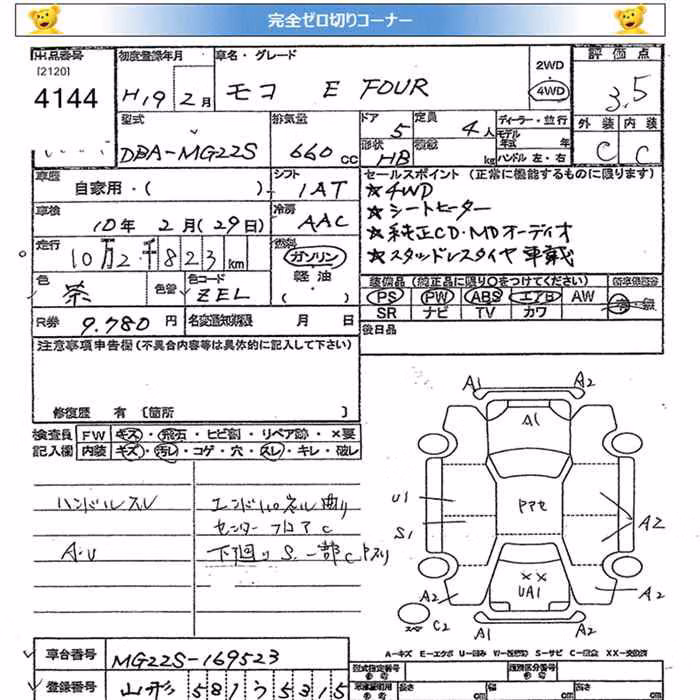 完全ゼロ切りコーナー
出品番号
[2120]
4144
初度登録年月
H,19 2月
車名・グレード
モコ E FOUR
2WD
4WD
評価点
3,5
外装 内装
C C
型式
DBA-MG22S
排気量
660 CC
ドア
5
定員
4人
形状
HB
積載
kg
ディーラー・並行
モデル年式 年
ハンドル 左・右
車歴
自家用・( )
シフト
IAT
セールスポイント (正常に機能するものに限ります)
☆4WD
☆シートヒーター
☆純正CD・MDオーディオ
☆スタッドレスタイヤ車載
車検
10年 2月(29日)
冷房
AAC
走行
10万2千823km
燃料
ガソリン
軽油
( )
色
紫
色替
色コード
ZEL
装備品 (純正品に限り○をつけてください)
PS PW ABS エアB AW
SR ナビ TV カワ
R券 9.780円
名変通知期限 月 日
後日品
注意事項申告欄(不具合内容等は具体的に記入して下さい)
修復歴 有 [箇所 ]
検査員記入欄
FW キズ・飛石・ヒビ割・リペア跡・×要
内装 キズ・汚レ・コゲ・穴・スレ・キレ・破レ
ハンドルスレ
エンドパネル曲り
センターフロアC
A・U
下廻りS 一部C
A1 A2
A1
U1
S1
A2
××
UA1
A2 A2
スペア C2
A1 A2
A-キズ E-エクボ U-凹み W-(板塗跡) S-サビ C-腐食 XX-交換済
車台番号
MG22S-169523
登録番号
山形 581 ワ 5315
長さ cm
幅 cm
高さ cm